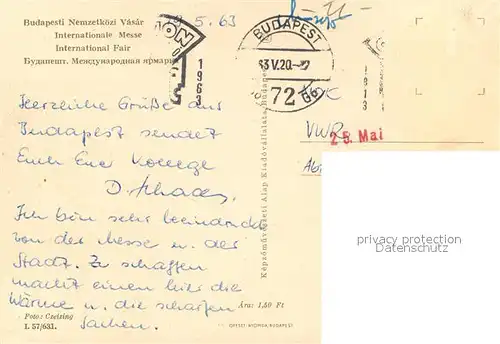 Budapesti Nemzetközi Vásár
Internationale Messe
International Fair
Будапешт. Международная ярмарка
5.63
1963
BUDAPEST
63 V.20.
72
VWR
25. Mai
Herzliche Grüße aus
Budapest sendet
Euch Euer Kollege
D. Schade
Ich bin sehr beeindruckt
von der Messe u. der
Stadt. Zu schaffen
macht einem hier die
Wärme u. die scharfen
Sachen.
Fotos: Czeizing
I. 57/631.
Ára: 1,50 Ft
OFFSET-NYOMDA, BUDAPEST
Képzőművészeti Alap Kiadóvállalata, Budapest
privacy protection
Datenschutz